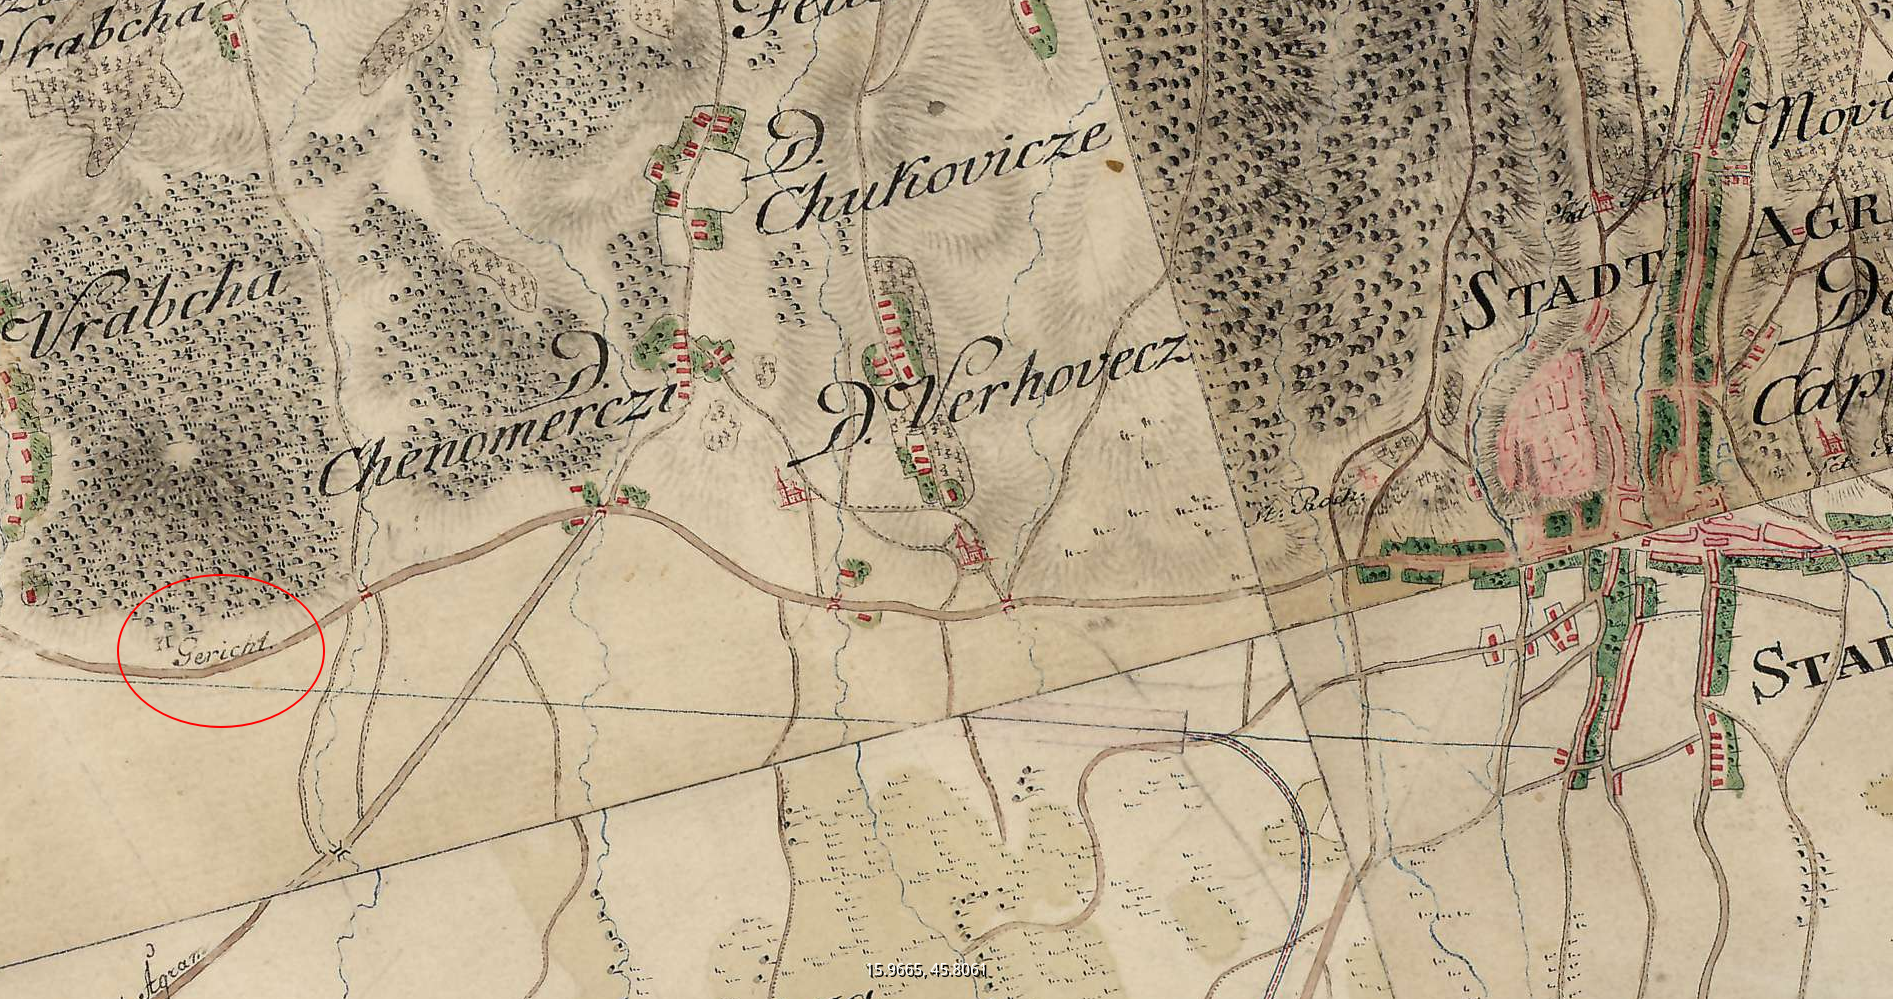 Vrabcha
D.
Chukovicze
Nov
St. Georg
STADT AGR
Vrabcha
D.
Chenomerczi
D. Verhovecz
D
Cap
St. Roch.
Gericht.
STAD
Agram
15.9665, 45.8061